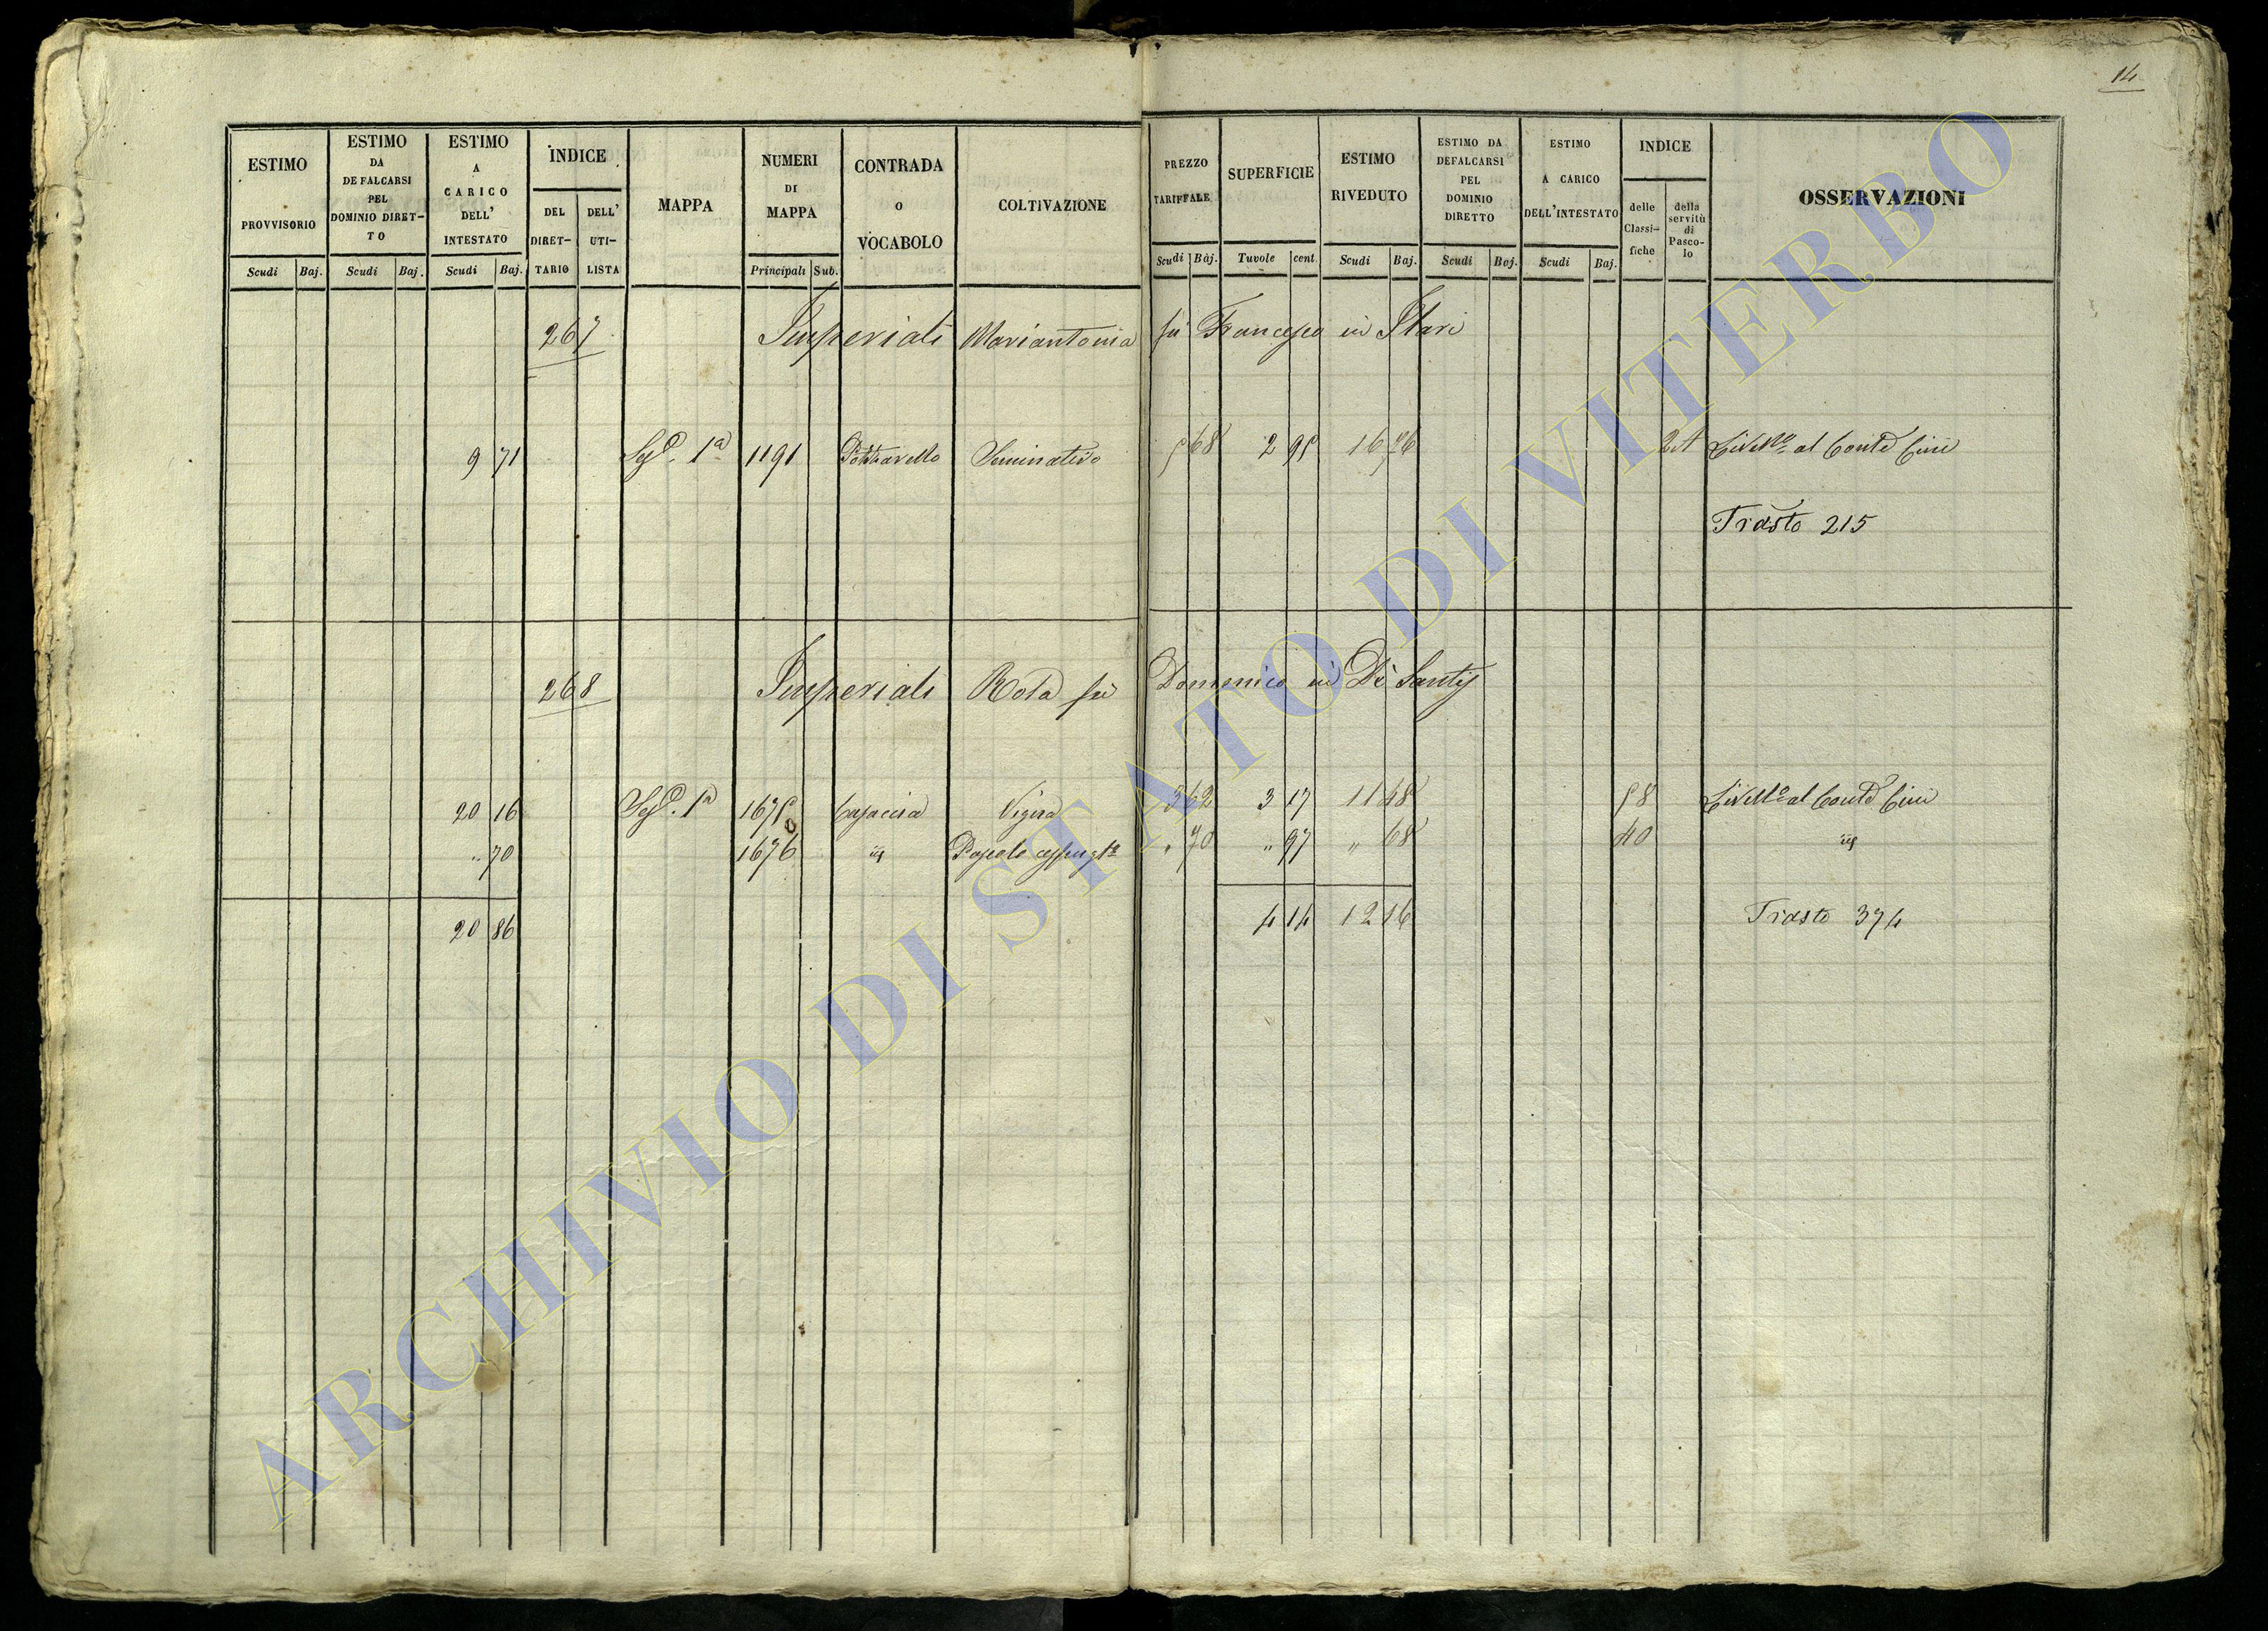 14
ESTIMO PROVVISORIO
ESTIMO DA DEFALCARSI PEL DOMINIO DIRET-TO
ESTIMO A CARICO DELL' INTESTATO
INDICE
DEL DIRET-TARIO
DELL' UTI-LISTA
MAPPA
NUMERI DI MAPPA
CONTRADA O VOCABOLO
COLTIVAZIONE
PREZZO TARIFFALE
SUPERFICIE
ESTIMO RIVEDUTO
ESTIMO DA DEFALCARSI PEL DOMINIO DIRETTO
ESTIMO A CARICO DELL'INTESTATO
INDICE
delle Classi-fiche
della servitù di Pasco-lo
OSSERVAZIONI
Scudi Baj. Scudi Baj. Scudi Baj. Principali Sub. Scudi Baj. Tavole cent. Scudi Baj. Scudi Baj. Scudi Baj.
267 Imperiali Mariantonia fu Francesco in Ilari
9 71 Sez. 1a 1191 Seminativo 5 68 2 95 16 76 24 Livello al Conte Cini
Triasto 215
268 Imperiali Rosa fu Domenico in Di Santis
20 16 Sez. 1a 1675 Vigna 3 62 3 17 11 48 58 Livello al Conte Cini
" 70 1676 " Pascolo " 70 " 97 " 68 40 "
20 86 4 14 12 16 Triasto 374
ARCHIVIO DI STATO DI VITERBO